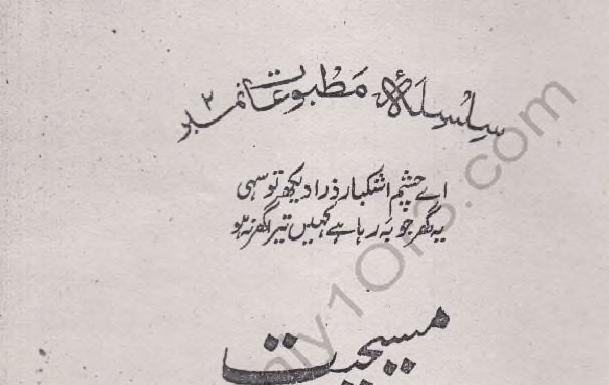 سِلسلۂ مَطبُوعَات نمبر ۲
اے چشم اشکبار ذرا دیکھ تو سہی
یہ گھر جو بہ رہا ہے کہیں تیرا گھر نہ ہو
مسیحیت